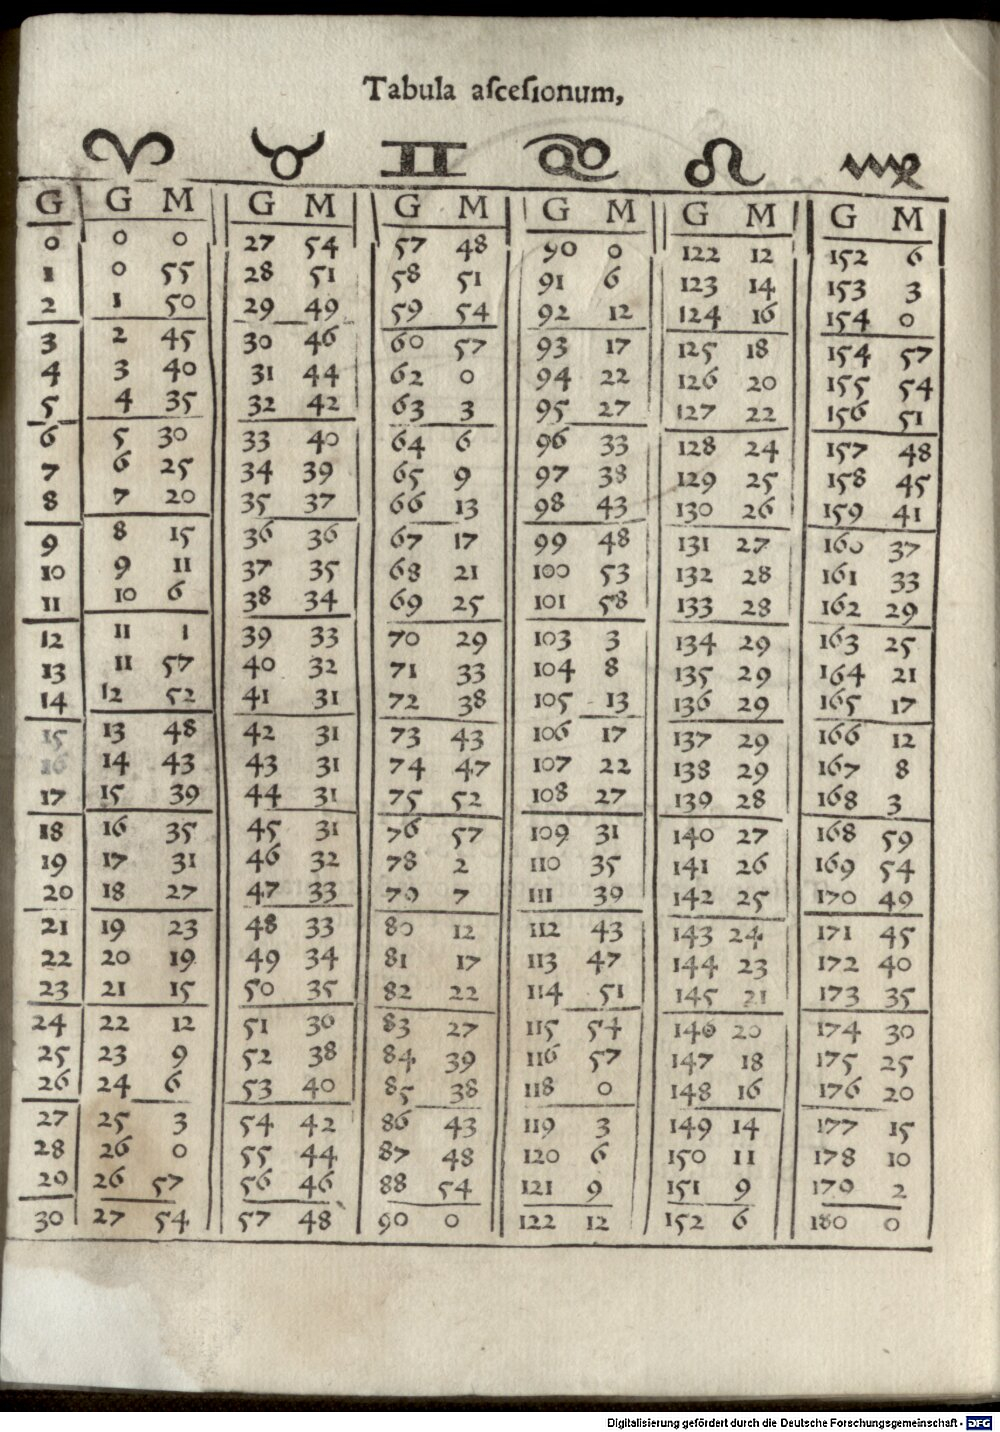 Tabula aſceſionum,
♈ ♉ ♊ ♋ ♌ ♍
G G M G M G M G M G M G M
0 0 0 27 54 57 48 90 0 122 12 152 6
1 0 55 28 51 58 51 91 6 123 14 153 3
2 1 50 29 49 59 54 92 12 124 16 154 0
3 2 45 30 46 60 57 93 17 125 18 154 57
4 3 40 31 44 62 0 94 22 126 20 155 54
5 4 35 32 42 63 3 95 27 127 22 156 51
6 5 30 33 40 64 6 96 33 128 24 157 48
7 6 25 34 39 65 9 97 38 129 25 158 45
8 7 20 35 37 66 13 98 43 130 26 159 41
9 8 15 36 36 67 17 99 48 131 27 160 37
10 9 11 37 35 68 21 100 53 132 28 161 33
11 10 6 38 34 69 25 101 58 133 28 162 29
12 11 1 39 33 70 29 103 3 134 29 163 25
13 11 57 40 32 71 33 104 8 135 29 164 21
14 12 52 41 31 72 38 105 13 136 29 165 17
15 13 48 42 31 73 43 106 17 137 29 166 12
16 14 43 43 31 74 47 107 22 138 29 167 8
17 15 39 44 31 75 52 108 27 139 28 168 3
18 16 35 45 31 76 57 109 31 140 27 168 59
19 17 31 46 32 78 2 110 35 141 26 169 54
20 18 27 47 33 79 7 111 39 142 25 170 49
21 19 23 48 33 80 12 112 43 143 24 171 45
22 20 19 49 34 81 17 113 47 144 23 172 40
23 21 15 50 35 82 22 114 51 145 21 173 35
24 22 12 51 30 83 27 115 54 146 20 174 30
25 23 9 52 38 84 39 116 57 147 18 175 25
26 24 6 53 40 85 38 118 0 148 16 176 20
27 25 3 54 42 86 43 119 3 149 14 177 15
28 26 0 55 44 87 48 120 6 150 11 178 10
29 26 57 56 46 88 54 121 9 151 9 179 2
30 27 54 57 48 90 0 122 12 152 6 180 0
Digitalisierung gefördert durch die Deutsche Forschungsgemeinschaft - DFG